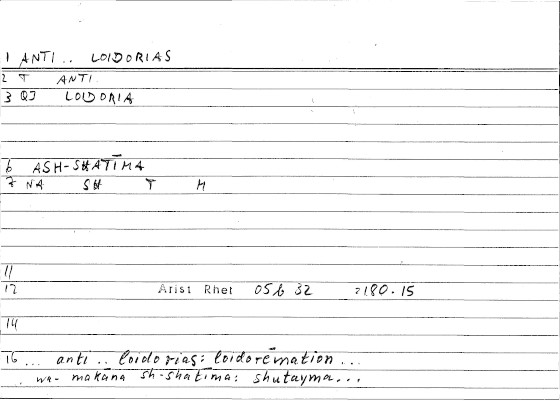 1 ANTI .. LOIDORIAS
2 T ANTI
3 QJ LOIDORIA
6 ASH-SHATĪMA
7 NA SH T M
11
12 Arist Rhet 05b 32 =180.15
14
16 ... anti .. loidorias: loidorēmation ...
. wa- makāna sh-shatīma: shutayma...